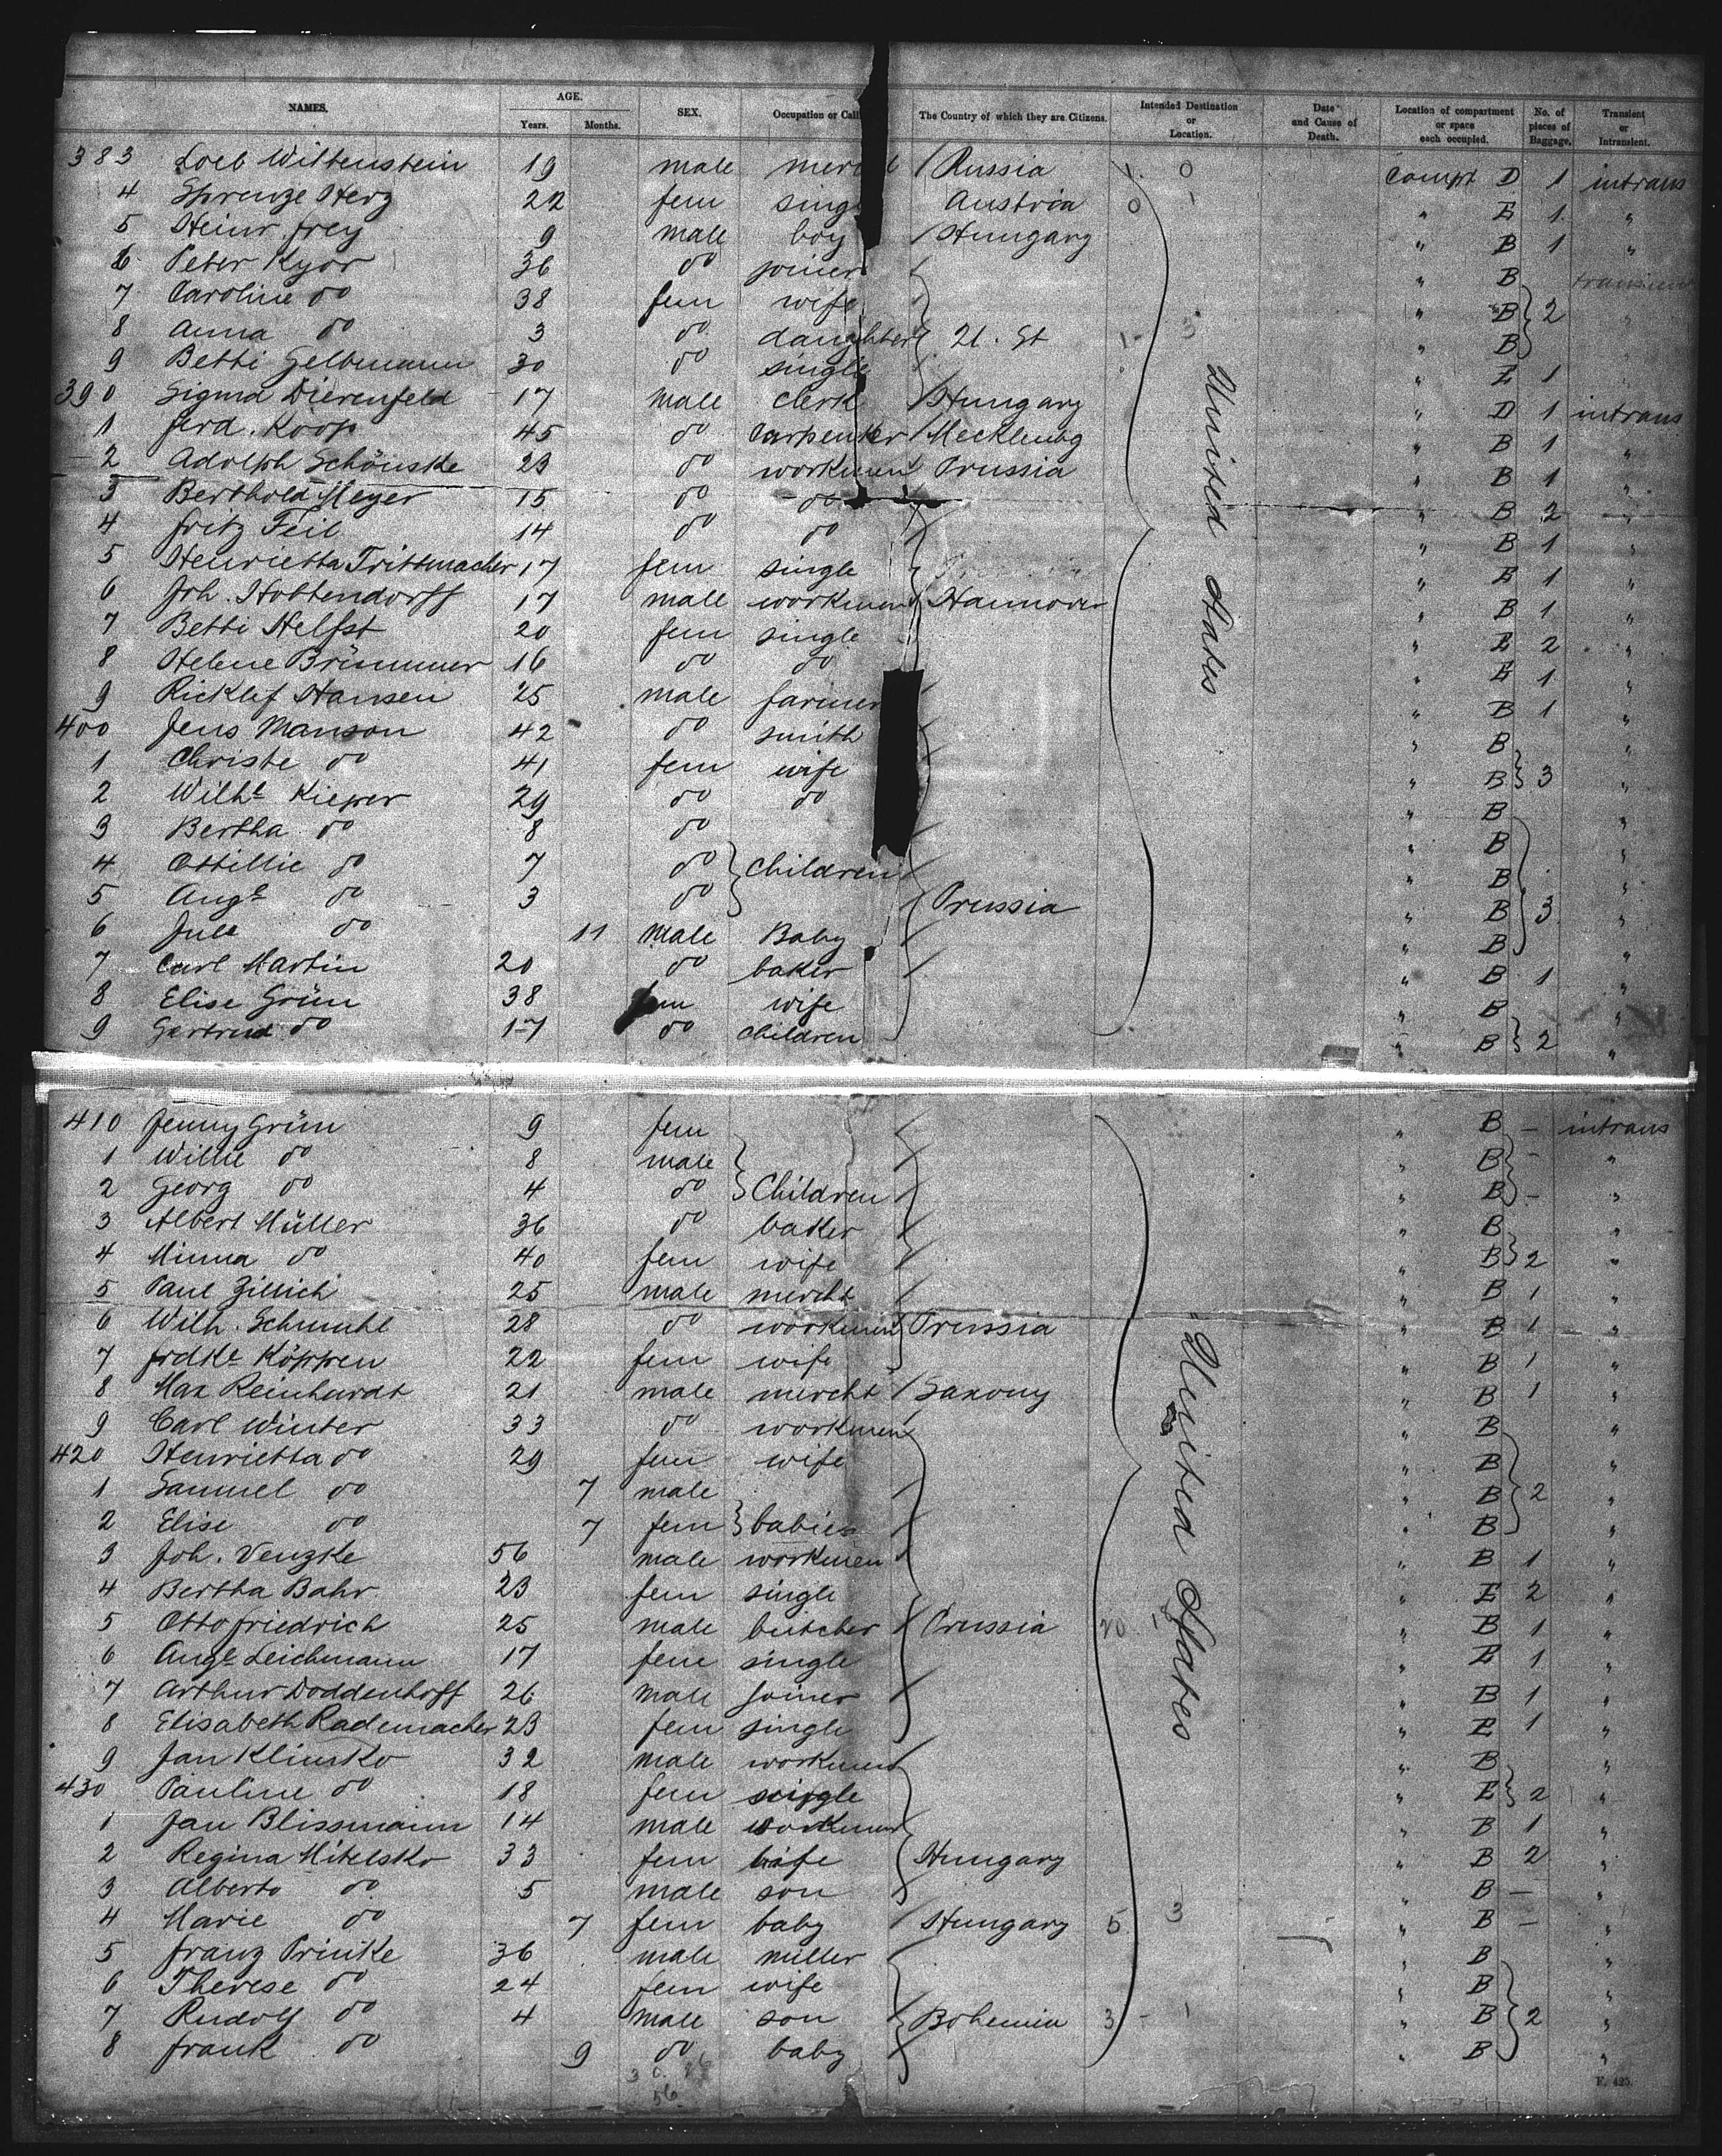 NAMES. AGE. Years. Months. SEX. Occupation or Call The Country of which they are Citizens. Intended Destination or Location. Date and Cause of Death. Location of compartment or space each occupied. No. of pieces of Baggage. Transient or Intransient.
383 Loeb Wittenstein 19 male Russia 1. 0 Compt D 1 intrans
4 Sprenze Herz 22 fem Austria 0 - " E 1 "
5 Heinr. Frey 9 male boy Hungary " B 1 "
6 Peter Kyor 36 do joiner " B transient
7 Caroline do 38 fem wife " B 2
8 Anna do 3 do daughter U. St 1- 3 " B
9 Betti Gelbmann 30 do single " E 1
390 Sigmd Dierenfeld 17 male clerk Hungary " D 1 intrans
1 Ferd. Koop 45 do Carpenter Mecklenbg " B 1 "
2 Adolph Schönske 23 do workmen Prussia " B 1 "
3 Berthold Meyer 15 do do " B 2 "
4 Fritz Feil 14 do do " B 1 "
5 Henrietta Trittmacher 17 fem single " E 1 "
6 Joh. Hottendorff 17 male workmen Hannover " B 1 "
7 Betti Helfst 20 fem single " E 2 "
8 Helene Brümmer 16 do do " E 1 "
9 Ricklef Hansen 25 male farmer " B 1 "
400 Jens Manson 42 do smith " B "
1 Christe do 41 fem wife " B 3 "
2 Wilhe Kieper 29 do do " B "
3 Bertha do 8 do " B "
4 Ottillie do 7 do Children " B "
5 Auge do 3 do Prussia " B 3 "
6 Jule do 11 male Baby " B "
7 Carl Martin 20 do baker " B 1 "
8 Elise Grün 38 fem wife " B "
9 Gertrud do 17 do children " B 2 "
United States
410 Jenny Grün 9 fem " B - intrans
1 Willie do 8 male " B - "
2 Georg do 4 do Children " B - "
3 Albert Müller 36 do baker " B "
4 Minna do 40 fem wife " B 2 "
5 Paul Zillich 25 male mercht " B 1 "
6 Wilh. Schmuhl 28 do workmen Prussia " B 1 "
7 Frdke Köppen 22 fem wife " B 1 "
8 Max Reinhardt 21 male mercht Saxony " B 1 "
9 Carl Winter 33 do workmen " B "
420 Henrietta do 29 fem wife " B "
1 Samuel do 7 male " B 2 "
2 Elise do 7 fem babies " B "
3 Joh. Venzke 56 male workmen " B 1 "
4 Bertha Bahr 23 fem single " E 2 "
5 Otto Friedrich 25 male butcher Prussia 20 " B 1 "
6 Auge Leichmann 17 fem single " E 1 "
7 Arthur Doddenhoff 26 male joiner " B 1 "
8 Elisabeth Rademacher 23 fem single " E 1 "
9 Jan Klinsko 32 male workmen " B "
430 Pauline do 18 fem single " E 2 "
1 Jan Blissmann 14 male workmen " B 1 "
2 Regina Mitelsko 33 fem wife Hungary " B 2 "
3 Alberto do 5 male son " B - "
4 Marie do 7 fem baby Hungary 5 3 " B - "
5 Franz Prinke 36 male miller " B "
6 Therese do 24 fem wife " B "
7 Rudolf do 4 male son Bohemia 3 - 1 " B 2 "
8 Frank do 9 do baby " B "
United States
56
F. 425.